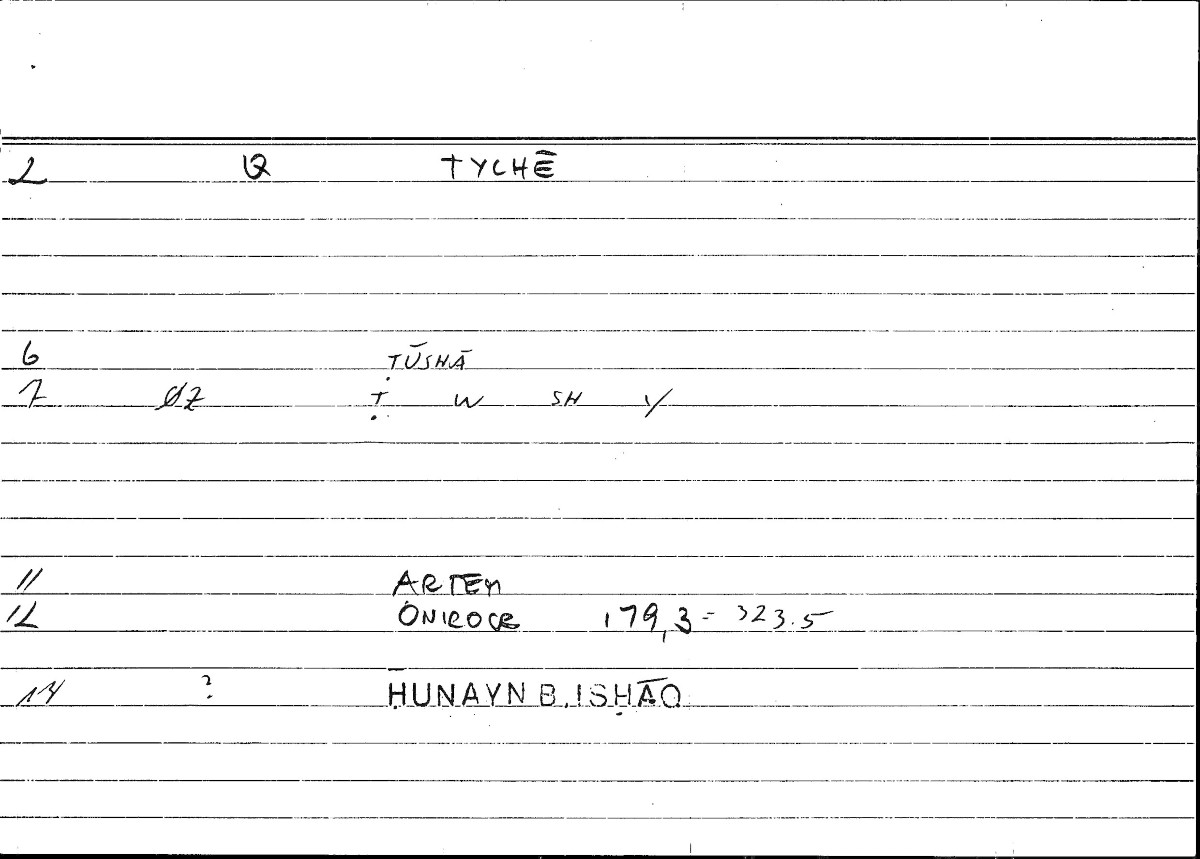 2 Q TYCHĒ
6 ṬŪSHĀ
7 ØZ Ṭ W SH Y
11 ARTEM
12 ONIROCR 179,3 = 323.5
14 ? ḤUNAYN B. ISḤĀQ